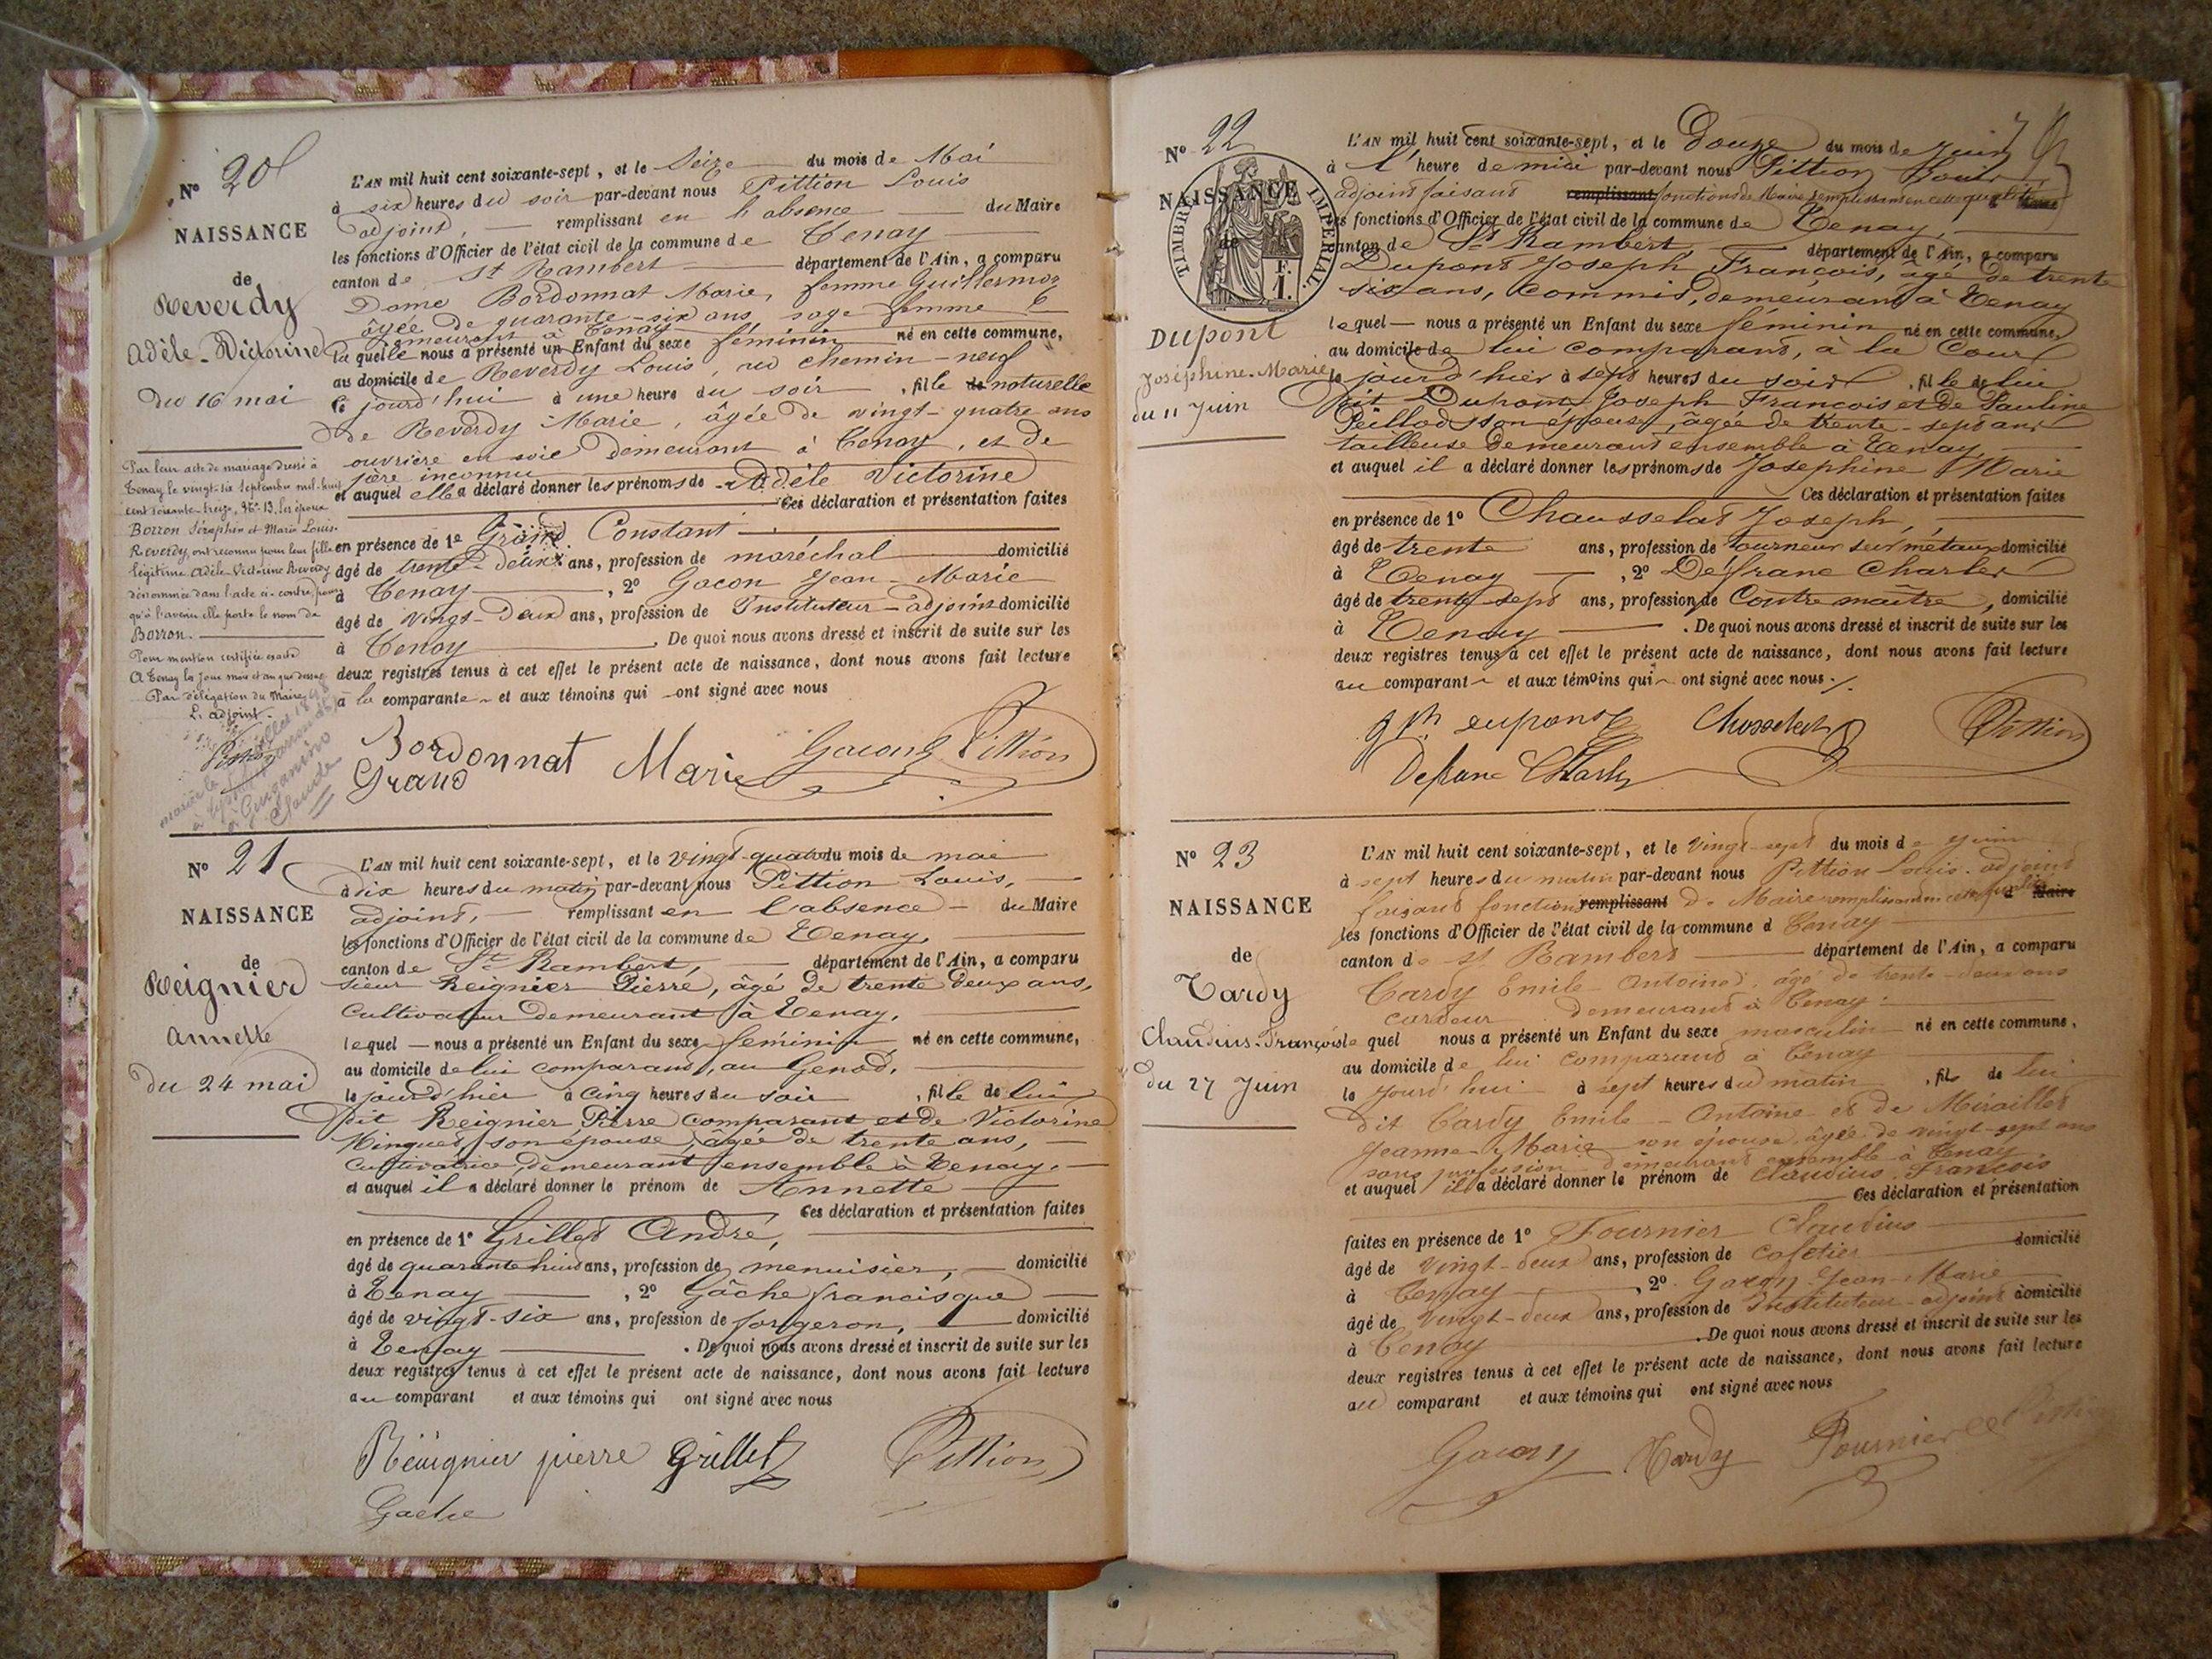 N° 20
NAISSANCE
de
Reverdy
Adèle-Victorine
du 16 mai
Par leur acte de mariage dressé à
Tenay le vingt-six Septembre mil-huit
cent soixante-treize, N° 13, les époux
Borron Séraphin et Marie Louise
Reverdy, ont reconnu pour leur fille
légitime Adèle Victorine Reverdy
dénommée dans l'acte ci-contre, pour
qu'à l'avenir elle porte le nom de
Borron.
Pour mention certifiée exacte
A Tenay les jour, mois et an que dessus
Par délégation du Maire
L'adjoint.
L'AN mil huit cent soixante-sept, et le Seize du mois de Mai
à six heures du soir par-devant nous Pittion Louis
adjoint, remplissant en l'absence du Maire
les fonctions d'Officier de l'état civil de la commune de Tenay
canton de St Rambert département de l'Ain, a comparu
Dame Bordonnat Marie, femme Guillermoz
âgée de quarante-six ans, sage femme
demeurant à Tenay
laquelle nous a présenté un Enfant du sexe féminin né en cette commune,
au domicile de Reverdy Louis, au chemin-neuf
le jourd'hui à une heure du soir, fille de naturelle
de Reverdy Marie, âgée de vingt-quatre ans
ouvrière en soie demeurant à Tenay, et de
père inconnu
et auquel elle a déclaré donner les prénoms de Adèle Victorine
Ces déclaration et présentation faites
en présence de 1° Grand Constant
âgé de trente-deux ans, profession de maréchal domicilié
à Tenay, 2° Gacon Jean-Marie
âgé de vingt-deux ans, profession de Instituteur-adjoint domicilié
à Tenay. De quoi nous avons dressé et inscrit de suite sur les
deux registres tenus à cet effet le présent acte de naissance, dont nous avons fait lecture
à la comparante et aux témoins qui ont signé avec nous
Bordonnat Marie Gacon Pittion
Grand
N° 21
NAISSANCE
de
Reignier
Annette
du 24 mai
L'AN mil huit cent soixante-sept, et le vingt-quatre du mois de mai
à dix heures du matin par-devant nous Pittion Louis,
adjoint, remplissant en l'absence du Maire
les fonctions d'Officier de l'état civil de la commune de Tenay,
canton de St Rambert, département de l'Ain, a comparu
sieur Reignier Pierre, âgé de trente deux ans,
cultivateur demeurant à Tenay,
lequel nous a présenté un Enfant du sexe féminin né en cette commune,
au domicile de lui comparant, au Genod,
le jourd'hier à cinq heures du soir, fille de lui
dit Reignier Pierre comparant et de Victorine
Ninguet, son épouse, âgée de trente ans,
cultivatrice demeurant ensemble à Tenay,
et auquel il a déclaré donner le prénom de Annette
Ces déclaration et présentation faites
en présence de 1° Grillet André,
âgé de quarante huit ans, profession de menuisier, domicilié
à Tenay, 2° Gâche francisque
âgé de vingt-six ans, profession de forgeron, domicilié
à Tenay. De quoi nous avons dressé et inscrit de suite sur les
deux registres tenus à cet effet le présent acte de naissance, dont nous avons fait lecture
au comparant et aux témoins qui ont signé avec nous
Reignier pierre Grillet Pittion
Gache
N° 22
NAISSANCE
de
TIMBRE IMPÉRIAL
F.
1.
Dupont
Joséphine-Marie
du 11 Juin
L'AN mil huit cent soixante-sept, et le Douze du mois de Juin
à l'heure de midi par-devant nous Pittion Louis
adjoint faisant remplissant fonctions de Maire remplissant en cette qualité
les fonctions d'Officier de l'état civil de la commune de Tenay,
canton de St Rambert département de l'Ain, a comparu
Dupont Joseph François, âgé de trente
six ans, commis, demeurant à Tenay
lequel nous a présenté un Enfant du sexe féminin né en cette commune,
au domicile de lui comparant, à la Cour
le jour d'hier à sept heures du soir, fille de lui
dit Dupont Joseph François et de Pauline
Peillod son épouse, âgée de trente-sept ans
tailleuse demeurant ensemble à Tenay
et auquel il a déclaré donner les prénoms de Joséphine Marie
Ces déclaration et présentation faites
en présence de 1° Chausselat Joseph,
âgé de trente ans, profession de tourneur sur métaux domicilié
à Tenay, 2° Défrane Charles
âgé de trente-sept ans, profession de Contre maître, domicilié
à Tenay. De quoi nous avons dressé et inscrit de suite sur les
deux registres tenus à cet effet le présent acte de naissance, dont nous avons fait lecture
au comparant et aux témoins qui ont signé avec nous.
Pittion
N° 23
NAISSANCE
de
Tardy
Claudius-François
du 27 Juin
L'AN mil huit cent soixante-sept, et le vingt-sept du mois de Juin
à sept heures du matin par-devant nous Pittion Louis adjoint
faisant fonctions remplissant de Maire remplissant en cette qualité Maire
les fonctions d'Officier de l'état civil de la commune d Tenay
canton de St Rambert département de l'Ain, a comparu
Tardy Emile-Antoine, âgé de trente-deux ans
cardeur demeurant à Tenay
lequel nous a présenté un Enfant du sexe masculin né en cette commune,
au domicile de lui comparant à Tenay
le jourd'hui à sept heures du matin, fils de lui
dit Tardy Emile-Antoine et de Mirailles
Jeanne-Marie son épouse, âgée de vingt-sept ans
sans profession demeurant ensemble à Tenay
et auquel il a déclaré donner le prénom de Claudius François
Ces déclaration et présentation
faites en présence de 1° Fournier Claudius
âgé de vingt-deux ans, profession de cafetier domicilié
à Tenay, 2° Gacon Jean-Marie
âgé de vingt-deux ans, profession de Instituteur-adjoint domicilié
à Tenay. De quoi nous avons dressé et inscrit de suite sur les
deux registres tenus à cet effet le présent acte de naissance, dont nous avons fait lecture
au comparant et aux témoins qui ont signé avec nous
Gacon Tardy Fournier